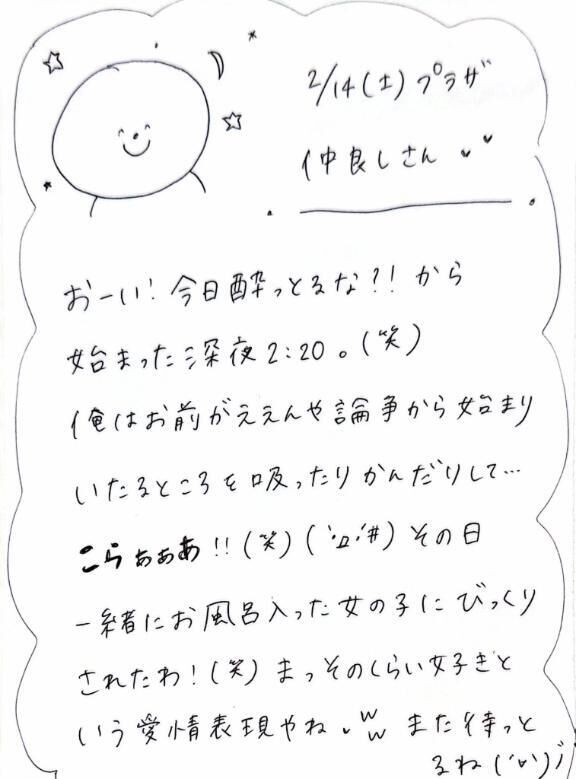 2/14(土)プラザ
仲良しさん
おーい!今日酔っとるな?!から
始まった深夜2:20。(笑)
俺はお前がええんや論争から始まり
いたるところを吸ったりかんだりして…
こらぁぁあ!!(笑)('ロ'#)その日
一緒にお風呂入った女の子にびっくり
されたわ!(笑)まっそのくらい好きと
いう愛情表現やね。ww また待っと
るね